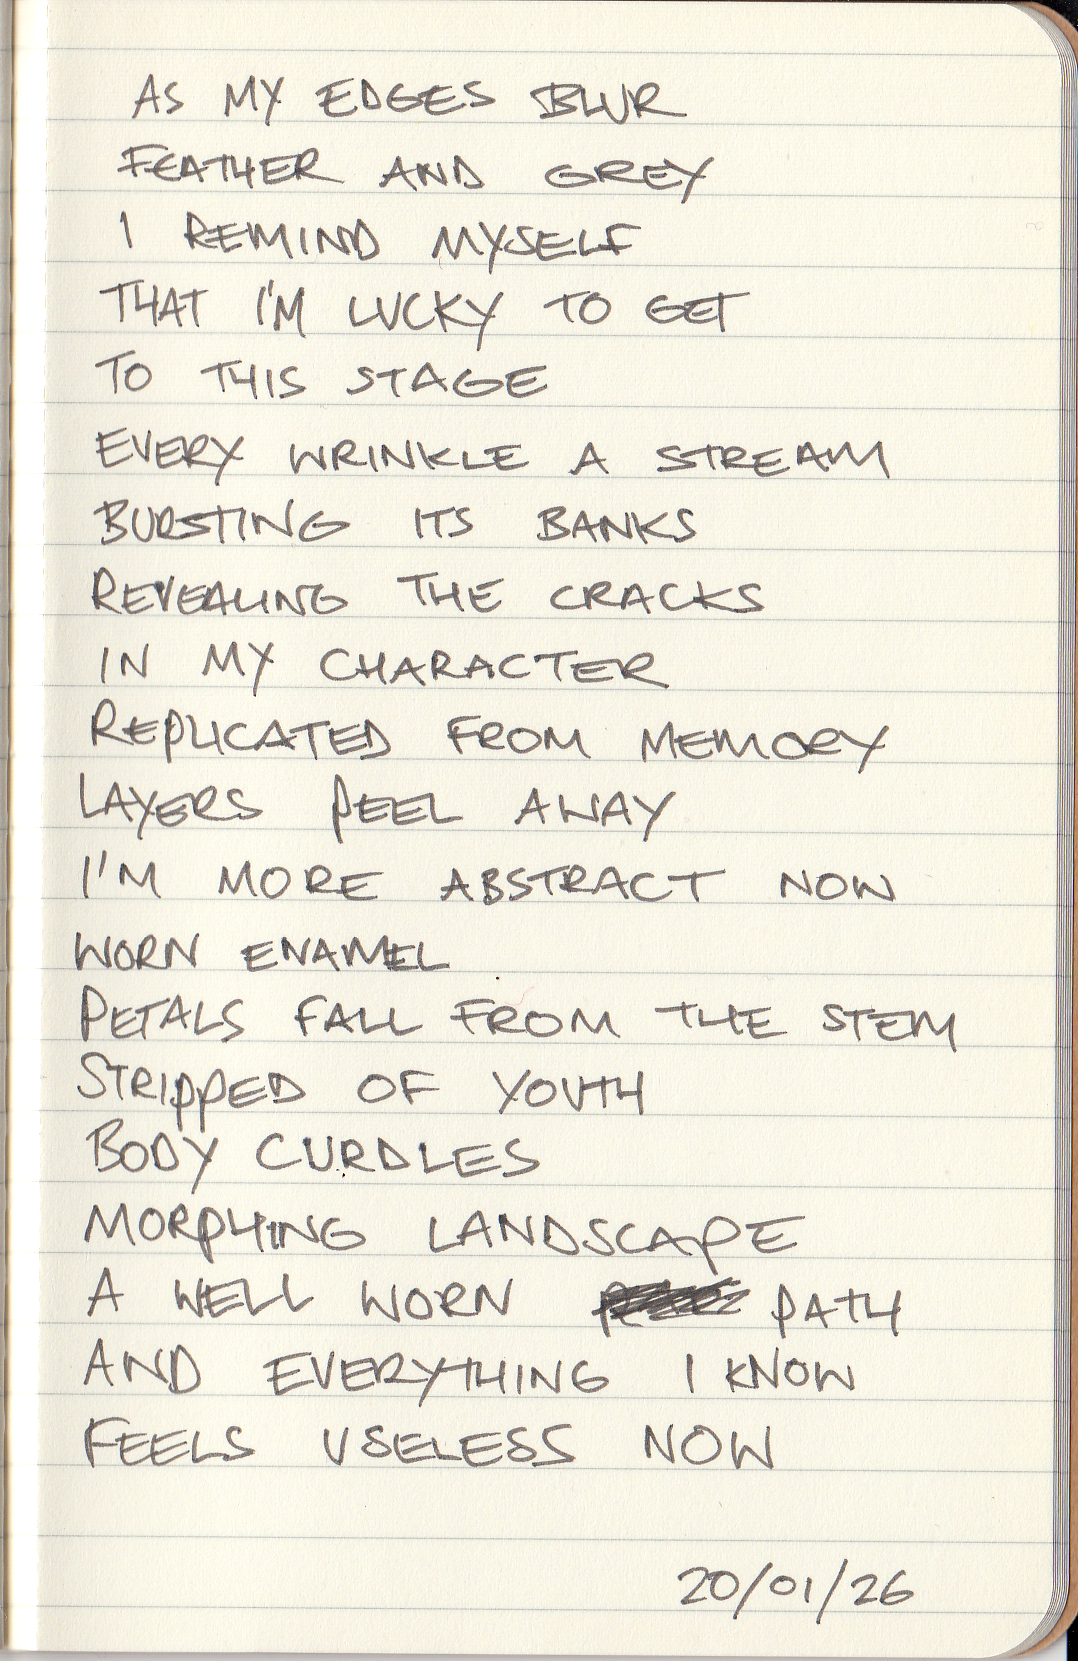 AS MY EDGES BLUR
FEATHER AND GREY
I REMIND MYSELF
THAT I'M LUCKY TO GET
TO THIS STAGE
EVERY WRINKLE A STREAM
BURSTING ITS BANKS
REVEALING THE CRACKS
IN MY CHARACTER
REPLICATED FROM MEMORY
LAYERS PEEL AWAY
I'M MORE ABSTRACT NOW
WORN ENAMEL
PETALS FALL FROM THE STEM
STRIPPED OF YOUTH
BODY CURDLES
MORPHING LANDSCAPE
A WELL WORN PATH
AND EVERYTHING I KNOW
FEELS USELESS NOW
20/01/26